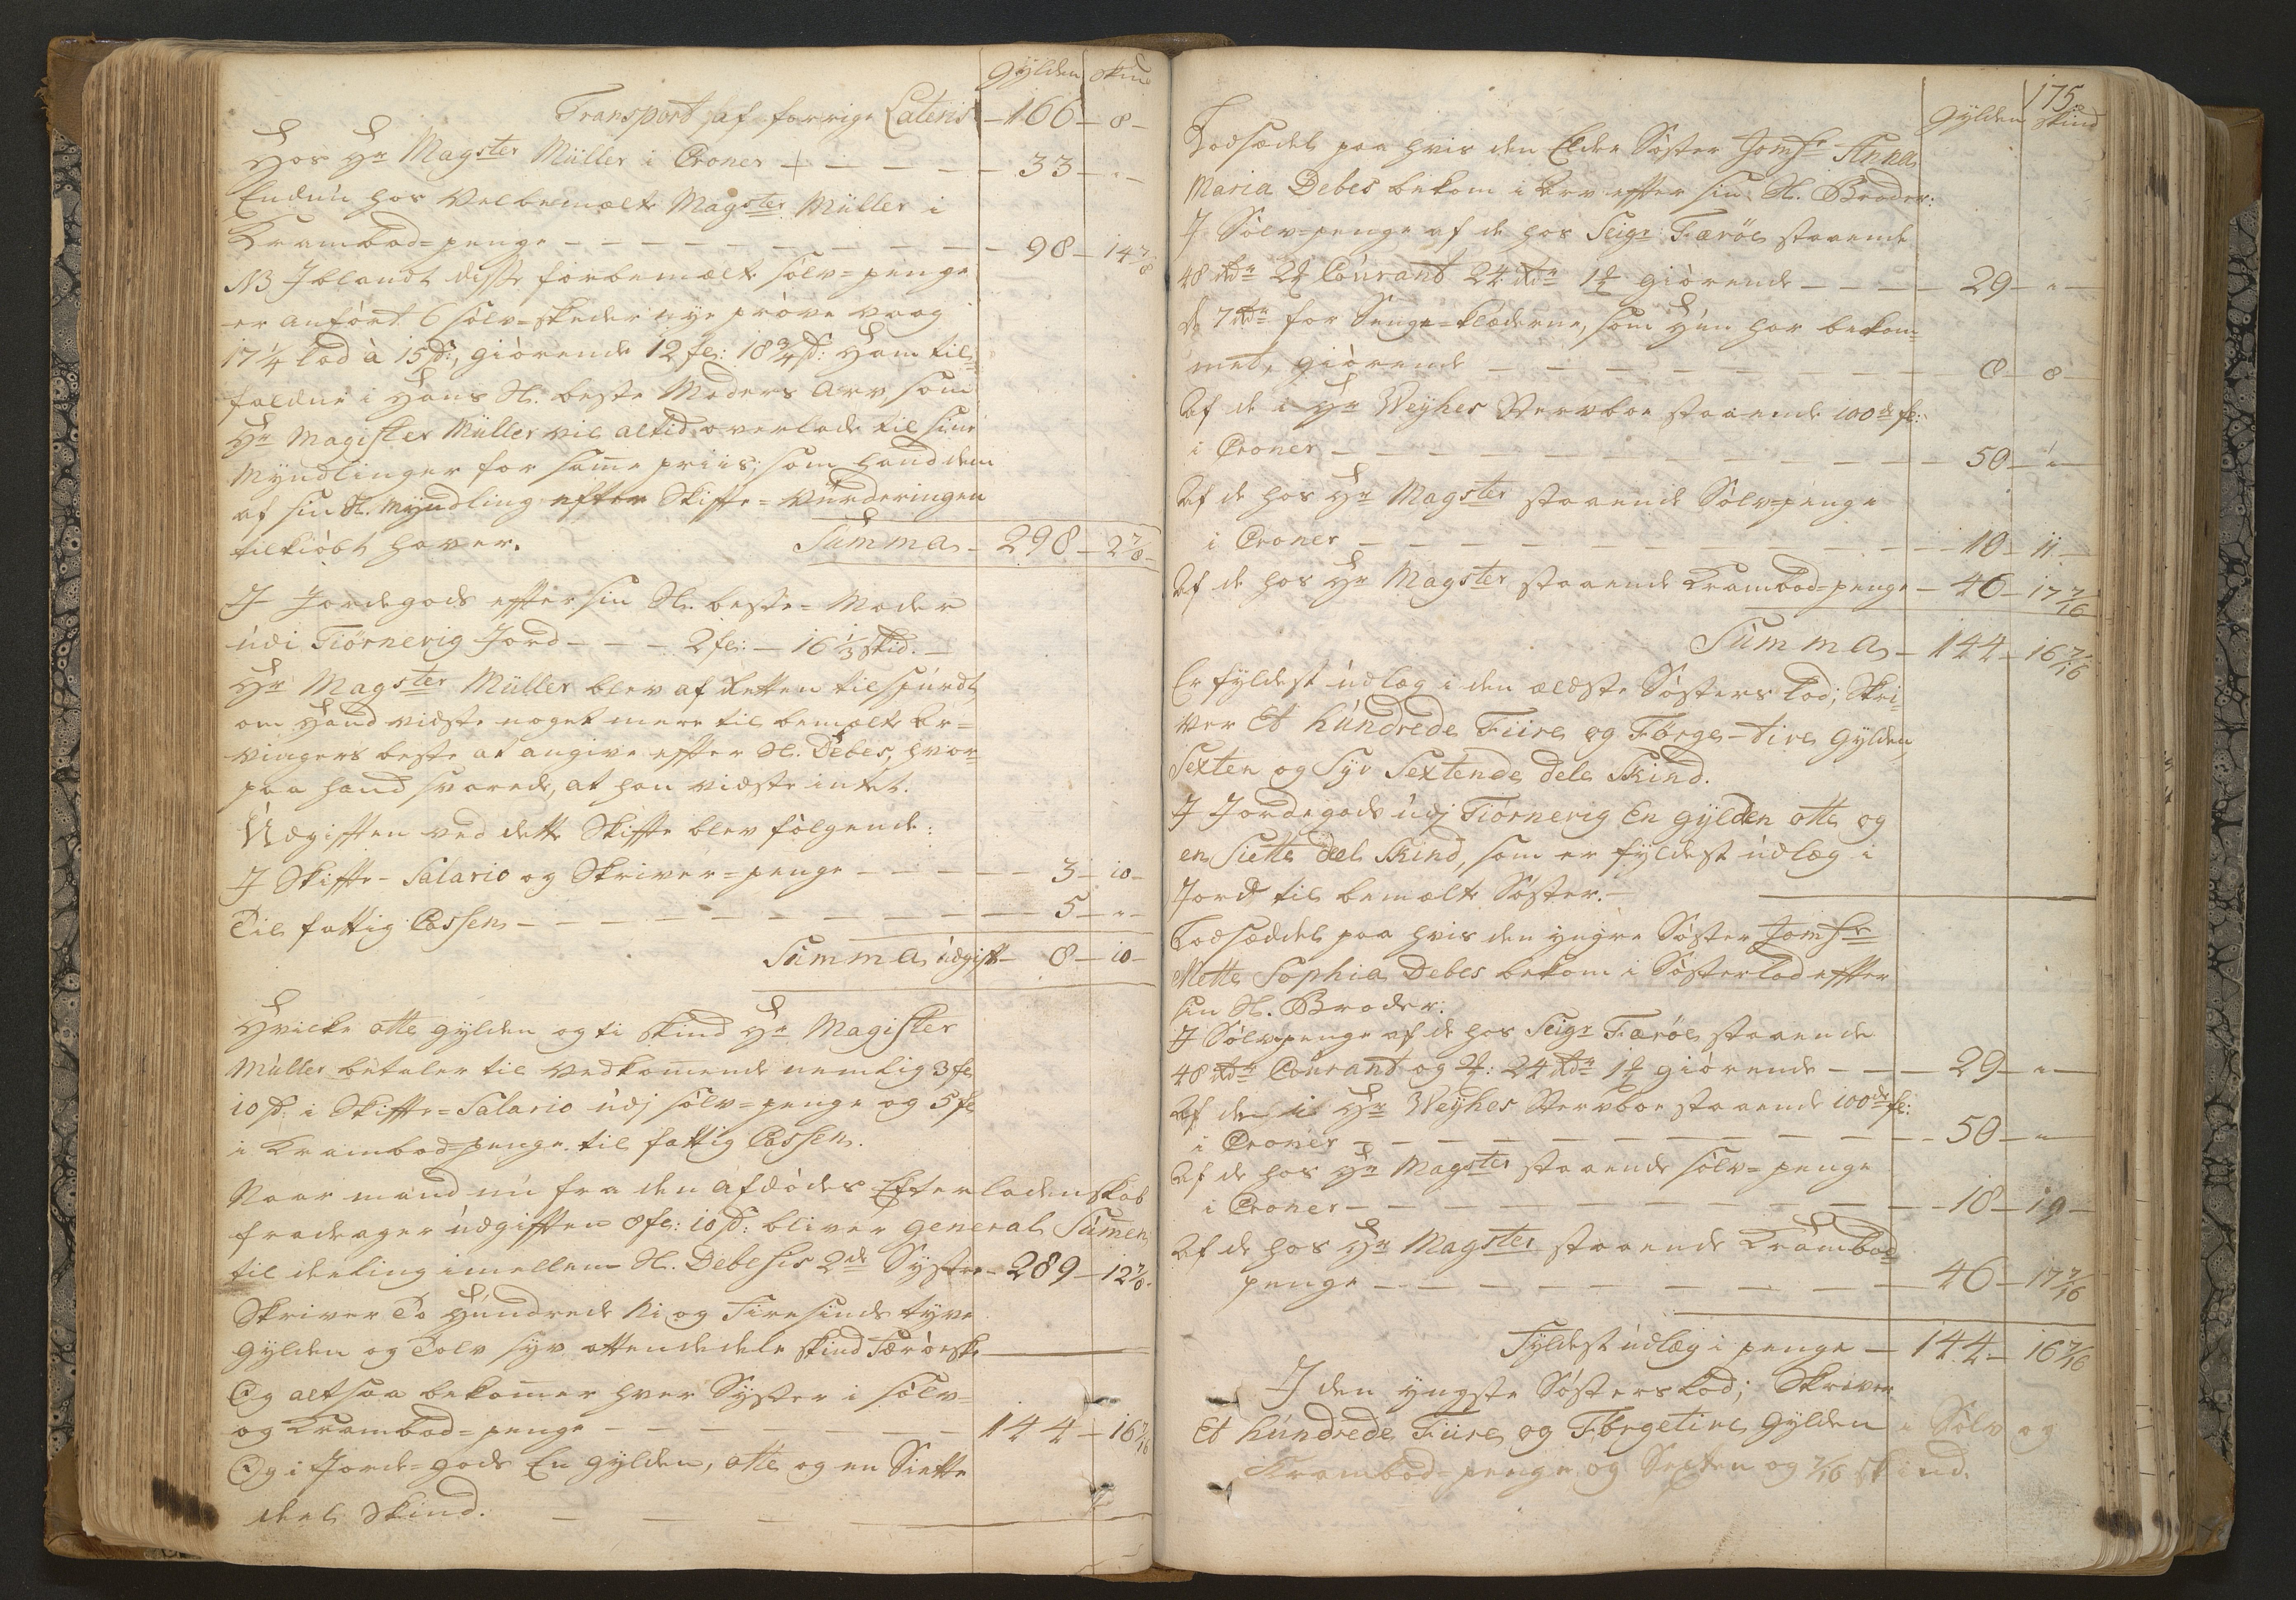 Gÿlden Skind
Transport af forrige Lateris – 166 – 8 –
Hos Hr Magster Müller i Croner – – – – – 33 – " –
Endnu hos Velbemælte Magster Müller i
Krambod=penge – – – – – – – – – – 98 – 14 7/8
NB Iblandt disse forbemælte sølv=penge
er anført 6 sølv=skeder nye prøve vog
17 1/4 lod à 15 s:, giørende 12 fl: 18 3/4 s: Ham til=
faldne i Hans Sl. beste Moders Arv, som
Hr Magister Müller vil altid overlade til sine
Mÿndlinger for same priis; som hand dem
af sin Sl. Mÿndling efter Skiffte=Vurderingen
tilkiøbt haver. Summa – 298 – 2 7/8
I Jordegods effter sin Sl. beste=Moder
udi Tiørnevig Jord – – – 2 fl: – 16 1/3 skid. –
Hr Magster Müller blev af Retten tilspurdt,
om Hand vidste noget mere til bemælte Ar=
vingers beste at angive effter Sl. Debes, hvor=
paa hand svarede, at han vidste intet.
Udgifften ved dette Skiffte blev følgende:
I Skiffte-Salario og Skriver=penge – – – – – 3 – 10 –
Til fattig Cassen – – – – – – – – – – 5 – " –
Summa udgifft – 8 – 10 –
Hvilke otte gÿlden og ti skind Hr Magister
Müller betaler til Vedkomende nemlig 3 fl
10 s: i Skiffte=Salario udj sølv=penge og 5 fl
i Krambod=penge til fattig Cassen.
Naar mand nu fra den afdødes Efterladenskab
fradrager udgifften 8 fl: 10 s: bliver general Sumen
til deeling imellem Sl. Debesis 2de Systre – 289 – 12 7/8
Skriver To Hundrede Ni og Firesinds tÿve
Gÿlden og Tolv syv ottendedele skind Færøeske
Og altsaa bekomer hver Syster i sølv=
og Krambod=penge – – – – – – – – 144 – 16 7/16
Og i Jorde=gods En gÿlden, otte og en Siette
deel Skind. – – – –
175.
Gÿlden skind
Lodsædel paa hvis den Eldre Søster Jomfr Anna
Maria Debes bekom i Arv effter sin Sl. Broder:
I Sølv=penge af de hos Seigr Færøe staaende
48 Rdr 2 Courant 24 Rdr giørende – – – – 29 – " –
de 7 Rdr for Senge=klæderne, som Hun har bekom=
met, giørende – – – – – – – – 8 – 8 –
Af de i Hr Weyhes Stervboe staaende 100de fl:
i Croner – – – – – – – – – – 50 – " –
Af de hos Hr Magster staaende Sølv=penge
i Croner – – – – – – – – – – 10 – 11 –
Af de hos Hr Magster staaende Krambod=penge – 46 – 17 7/16
Summa – 144 – 16 7/16
Er fyldest udlæg i den ældste Søsters lod; Skri=
ver Et hundrede Fiire og Førge-tive Gÿlden,
Sexten og Syv Sextende dele Skind.
I Jordegods udj Tiørnevig En gÿlden otte og
en Siette deel Skind, som er fyldest udlæg i
Jord til bemælte Søster. –
Lodsæddel paa hvis den yngre Søster Jomfr
Mette Sophia Debes bekom i Søsterlod effter
sin Sl. Broder:
I Sølvpenge af de hos Seigr Færøe staaende
48 Rdr Courant og : 24 Rdr giørende – – – 29 – " –
Af de i Hr Weÿhes Stervboe staaende 100de fl:
i Croner – – – – – – – – – – 50 – " –
Af de hos Hr Magster staaende sølv=penge
i Croner – – – – – – – – – – 18 – 19 –
Af de hos Hr Magster staaende Krambod=
penge – – – – – – – – – 46 – 17 7/16
Fyldest udlæg i penge – 144 – 16 7/16
I den yngste Søsters Lod; Skriver
Et hundrede Fiire og Førgetive Gÿlden i Sølv og
Krambod=penge og Sexten og 7/16 skind.